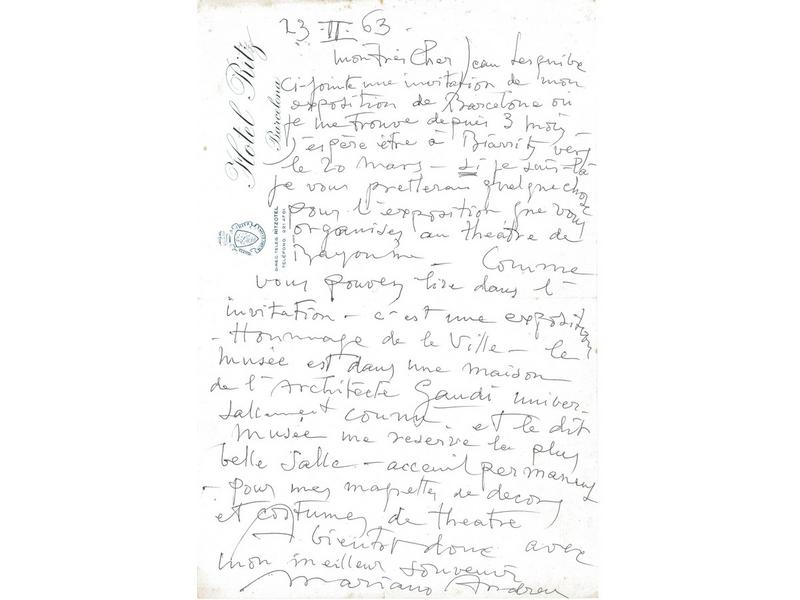 23 - II - 63.
Mon Très Cher Jean Lesquibe
Ci-jointe une invitation de mon
exposition de Barcelona où
je me trouve depuis 3 mois -
J'espère être à Biarritz vers
le 20 mars - si je suis-là
je vous pretterai quelque chose
pour l'exposition que vous
organisez au theâtre de
Bayonne - Comme
vous pouvez lire dans l'
invitation - c'est une exposition
- Hommage de la Ville - le
musée est dans une maison
de l'Architecte Gaudi univer-
sallement connu - et le dit
musée me reserve la plus
belle Salle - acceuil permanent
- pour mes maquettes de decors
et costumes de theatre
A bientot donc avec
mon meilleur souvenir
Mariano Andreu
Hotel Ritz
Barcelona
DIREC. TELEG. RITZOTEL